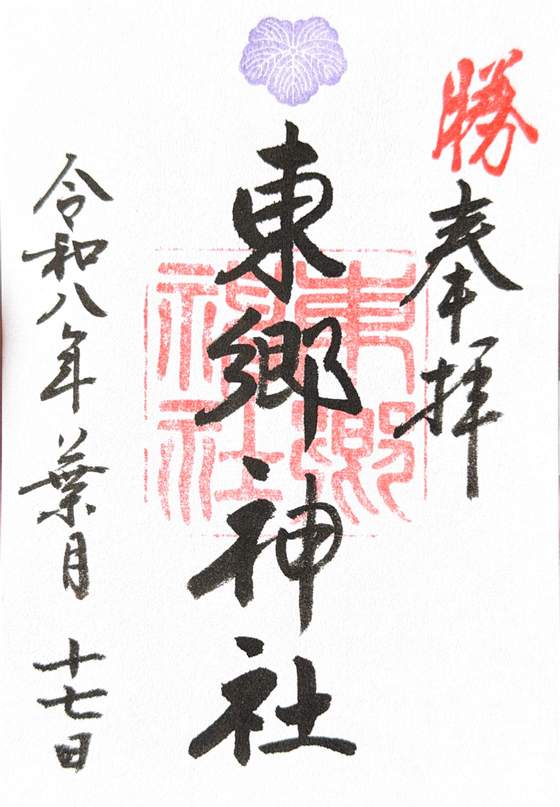 勝
奉拝
東郷神社
東郷神社
令和八年葉月十七日